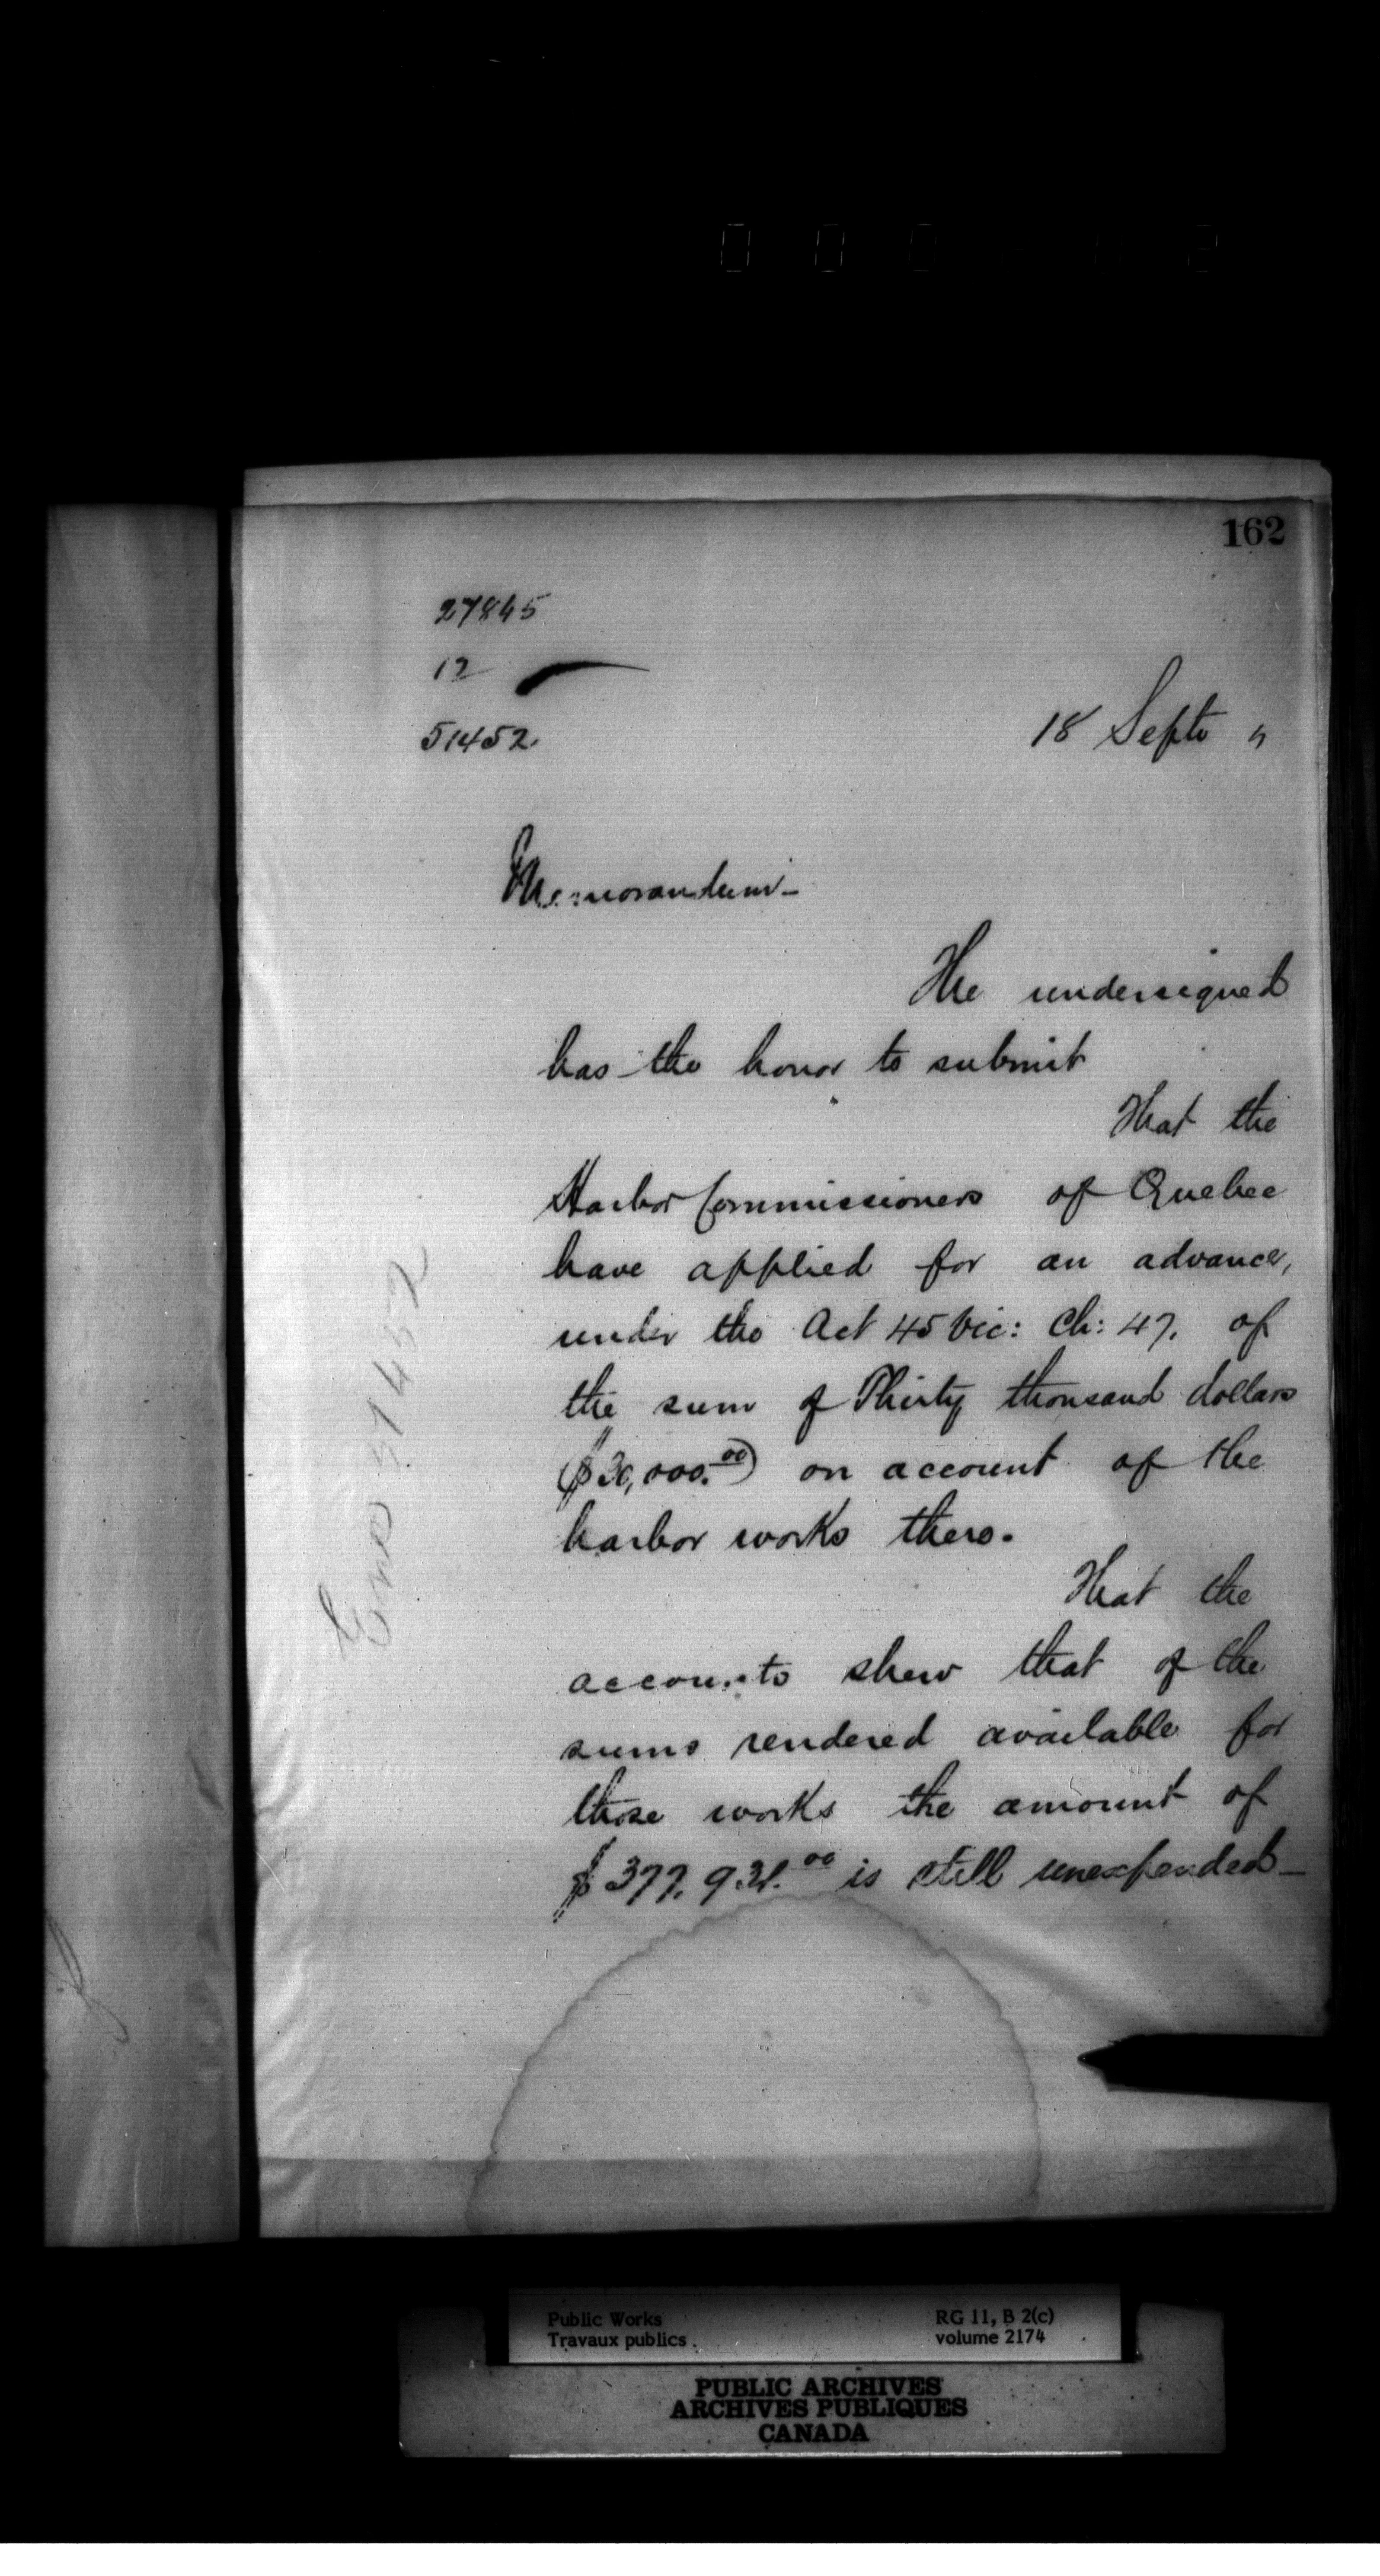 162
27845
12
51452
18 Septr "
Memorandum
The undersigned
has the honor to submit
That the
Harbor Commissioners of Quebec
have applied for an advance,
under the Act 45 Vic: Ch: 47. of
the sum of Thirty thousand dollars
($30,000.00) on account of the
harbor works there.
That the
accounts shew that of the
sums rendered available for
those works the amount of
$377,931.00 is still unexpended
51452
Public Works
Travaux publics
RG 11, B 2(c)
volume 2174
PUBLIC ARCHIVES
ARCHIVES PUBLIQUES
CANADA